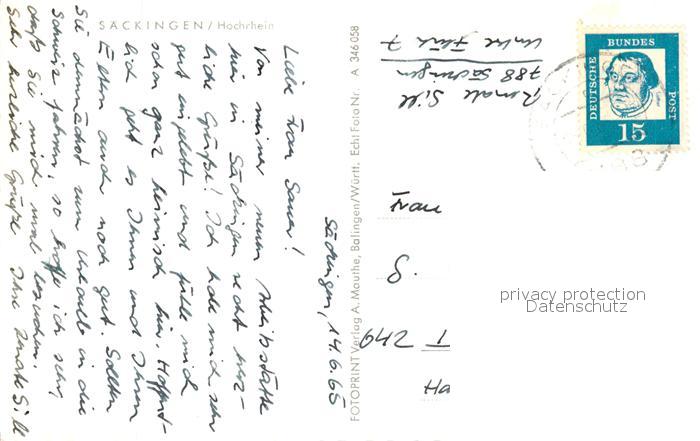 SÄCKINGEN / Hochrhein
Säckingen, 14.6.65
Liebe Frau Sauer!
Von meiner neuen Arbeitsstätte
hier in Säckingen recht herz-
liche Grüße! Ich habe mich sehr
gut eingelebt und fühle mich
schon ganz heimisch hier. Hoffent-
lich geht es Ihnen und Ihren
Eltern auch noch gut. Sollten
Sie demnächst zum Urlaub in die
Schweiz fahren, so hoffe ich sehr,
daß Sie mich mal besuchen.
Sehr herzliche Grüße Ihre Renate Sill
FOTOPRINT Verlag A. Mauthe, Balingen/Württ. Echt Foto Nr. A 346 058
Renate Sill
788 Säckingen
7
DEUTSCHE
BUNDES
POST
15
Luther
Frau
S.
Ha
privacy protection
Datenschutz